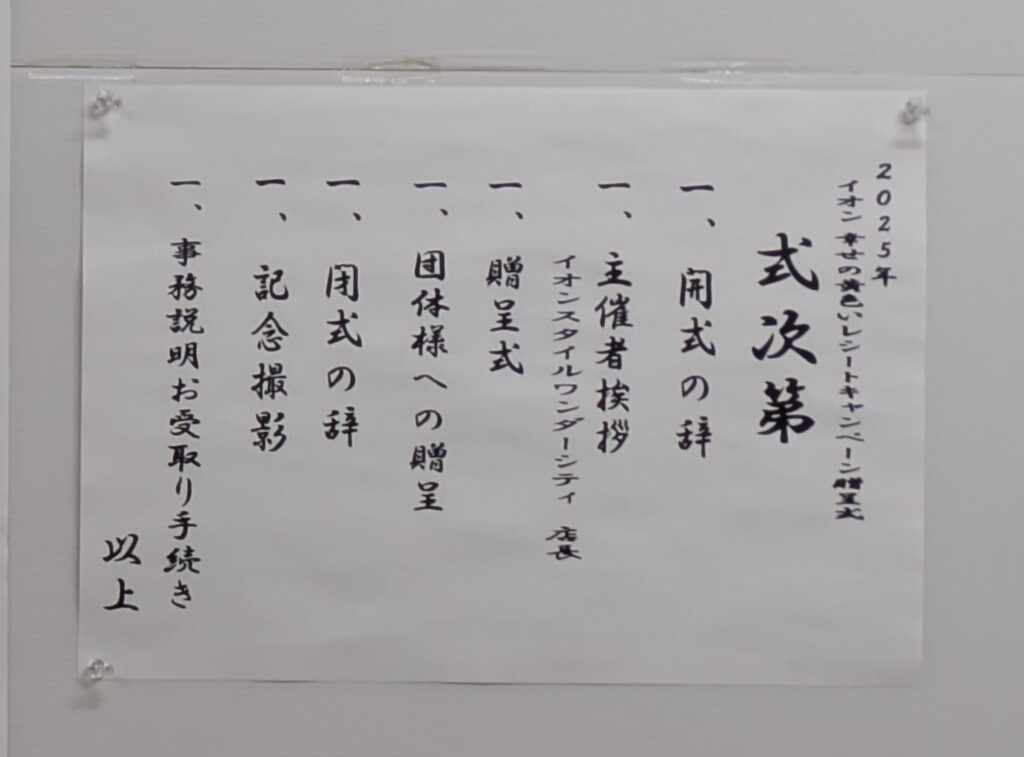 2025年
イオン 幸せの黄色いレシートキャンペーン贈呈式
式次第
一、開式の辞
一、主催者挨拶
イオンスタイルワンダーシティ 店長
一、贈呈式
一、団体様への贈呈
一、閉式の辞
一、記念撮影
一、事務説明お受取り手続き
以上